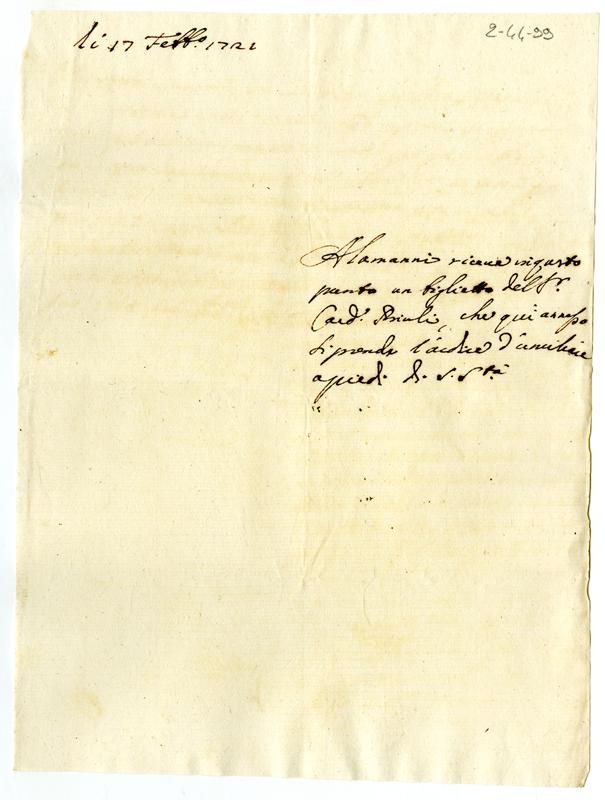 li 17 Febb.o 1721
2-44-99
Alamanni riceve in questo
punto un biglietto del Sr.
Card.l Priuli, che qui annesso
si prende l'ardire d'umiliare
a piedi di S. S.tà